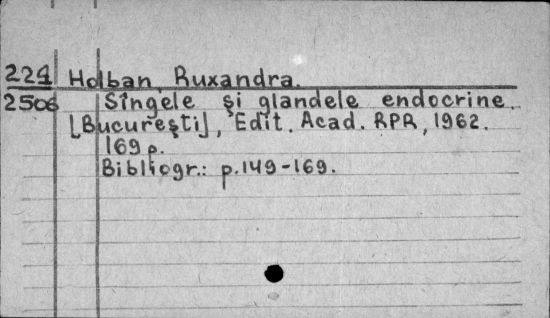 224 Holban, Ruxandra.
2506 Sîngele și glandele endocrine.
[București], Edit. Acad. RPR, 1962.
169 p.
Bibliogr.: p.149-169.